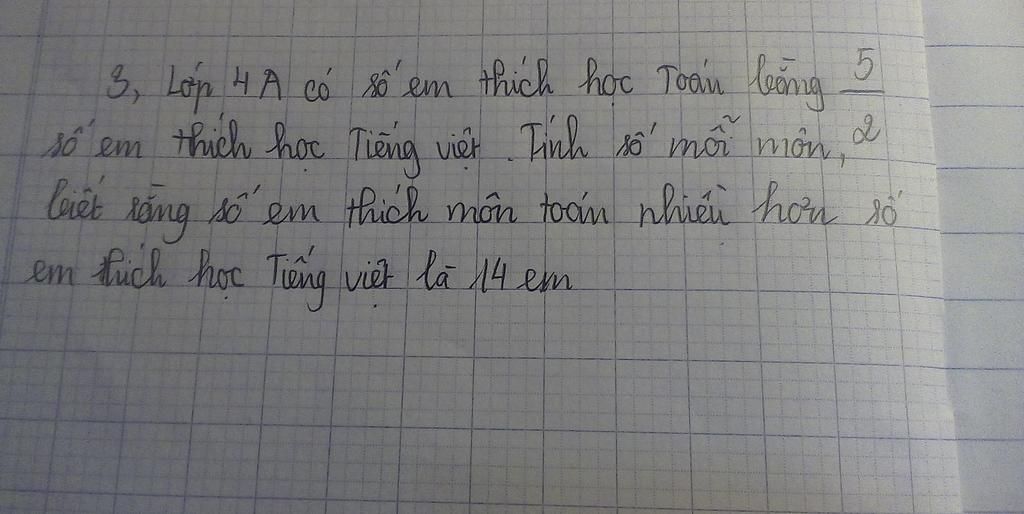 3, Lớp 4A có số em thích học Toán bằng 5/2
số em thích học Tiếng việt. Tính số mỗi môn,
biết rằng số em thích môn toán nhiều hơn số
em thích học Tiếng việt là 14 em